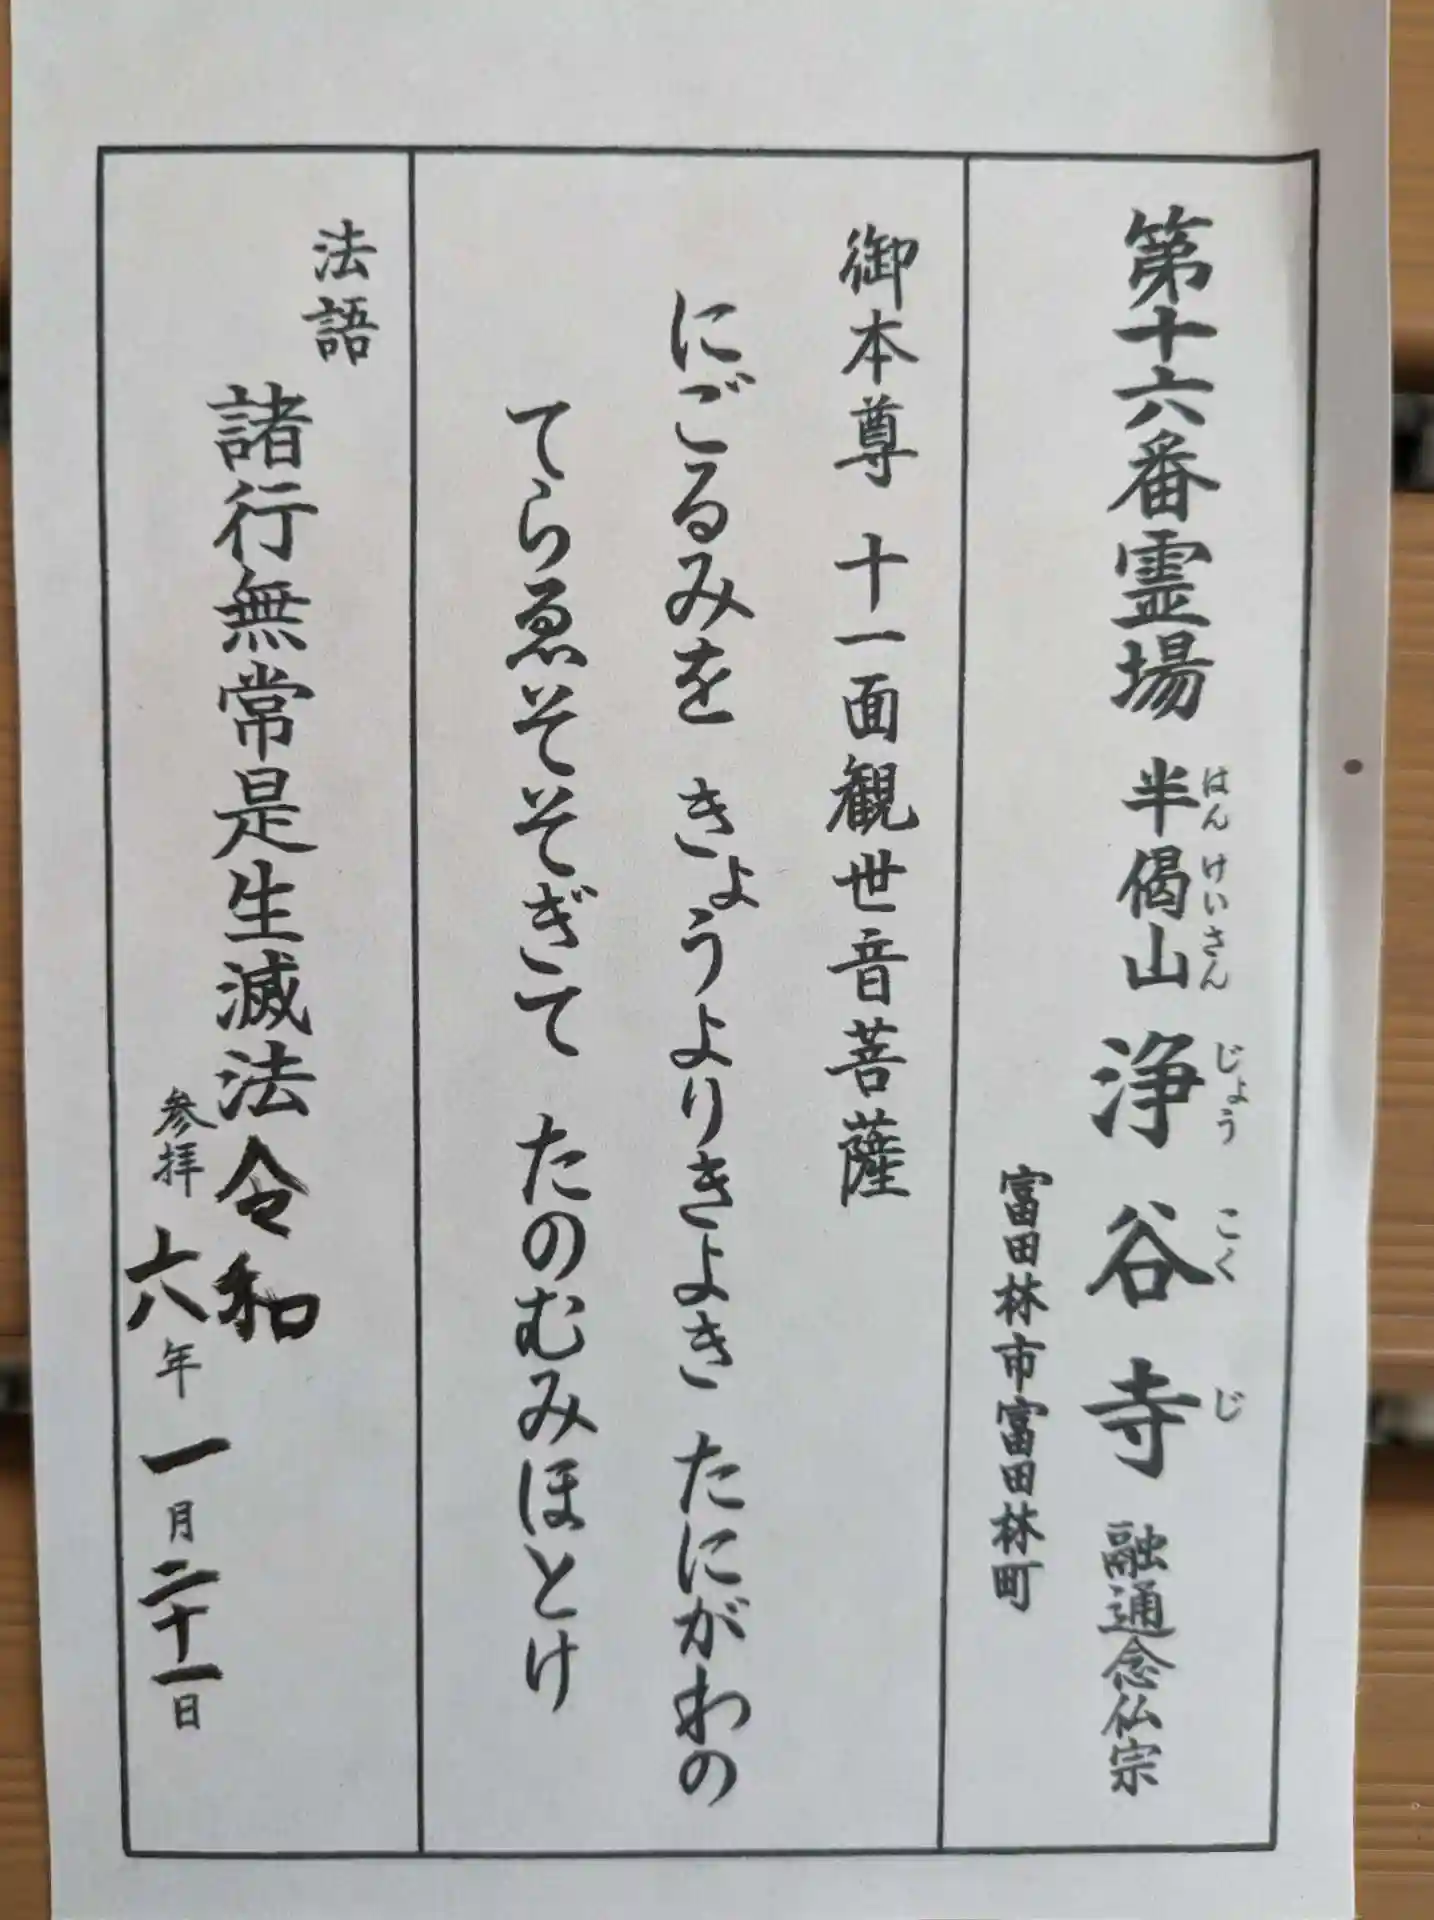 第十六番霊場 半偈山 浄谷寺 融通念仏宗
はん けいさん じょう こく じ
富田林市富田林町
御本尊 十一面観世音菩薩
にごるみを きょうよりきよき たにがわの
てらゑそそぎて たのむみほとけ
法語
諸行無常是生滅法 令和
参拝 六年 一月二十一日